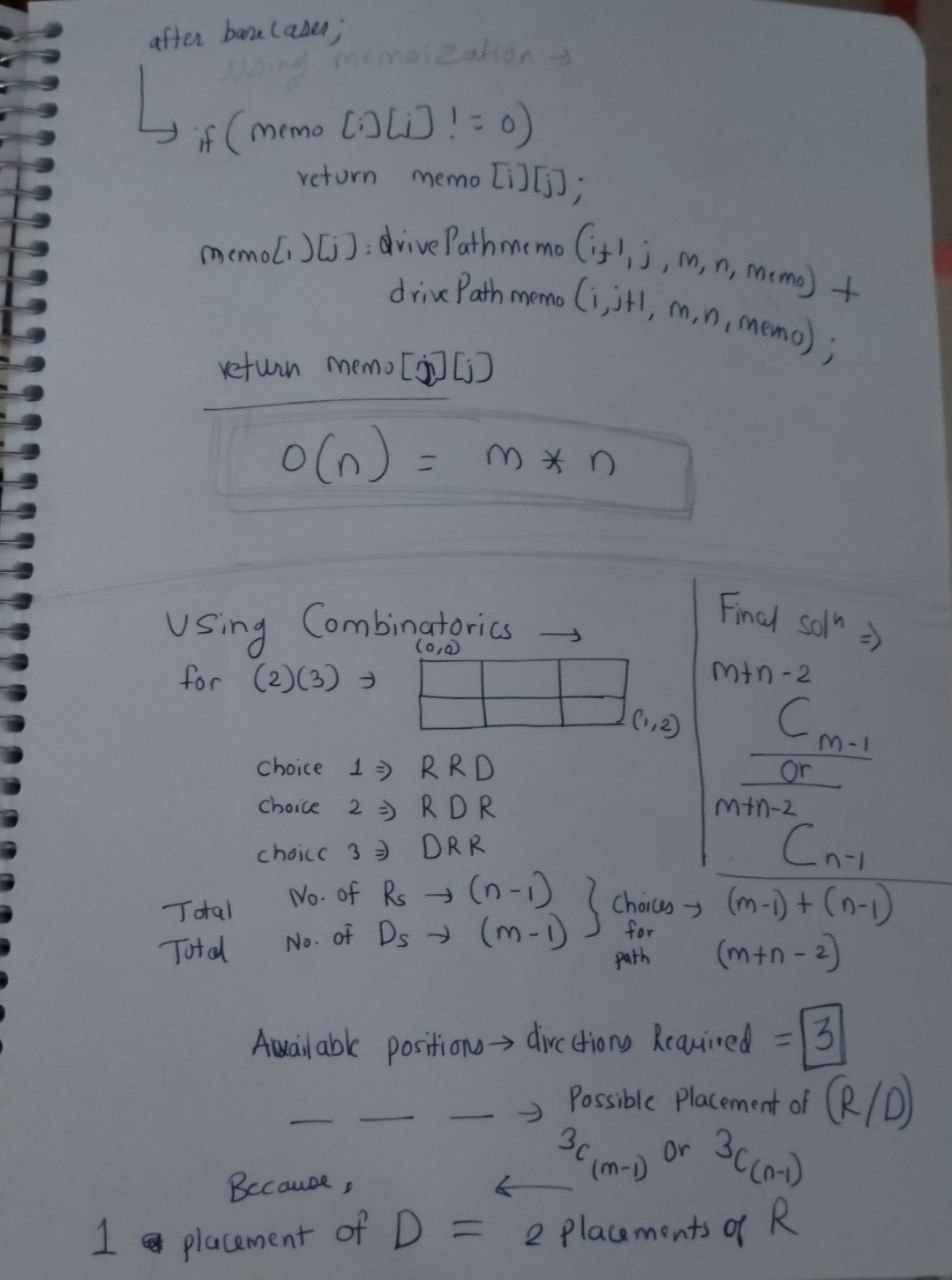 after base cases;
using memoization →
if (memo [i][j] != 0)
return memo [i][j];
memo[i][j] = drivePathmemo (i+1, j, m, n, memo) +
drivePathmemo (i, j+1, m, n, memo);
return memo[i][j]
O(n) = m * n
Using Combinatorics →
for (2)(3) →
(0,0)
(1,2)
Choice 1 ⇒ R R D
Choice 2 ⇒ R D R
choice 3 ⇒ D R R
Final solⁿ ⇒
m+n-2
C m-1
or
m+n-2
C n-1
Total No. of Rs → (n-1)
Total No. of Ds → (m-1)
} Choices for path → (m-1) + (n-1)
(m+n-2)
Available positions → directions Required = 3
_ _ _ → Possible Placement of (R/D)
³C(m-1) or ³C(n-1)
Because, ←
1 placement of D = 2 placements of R